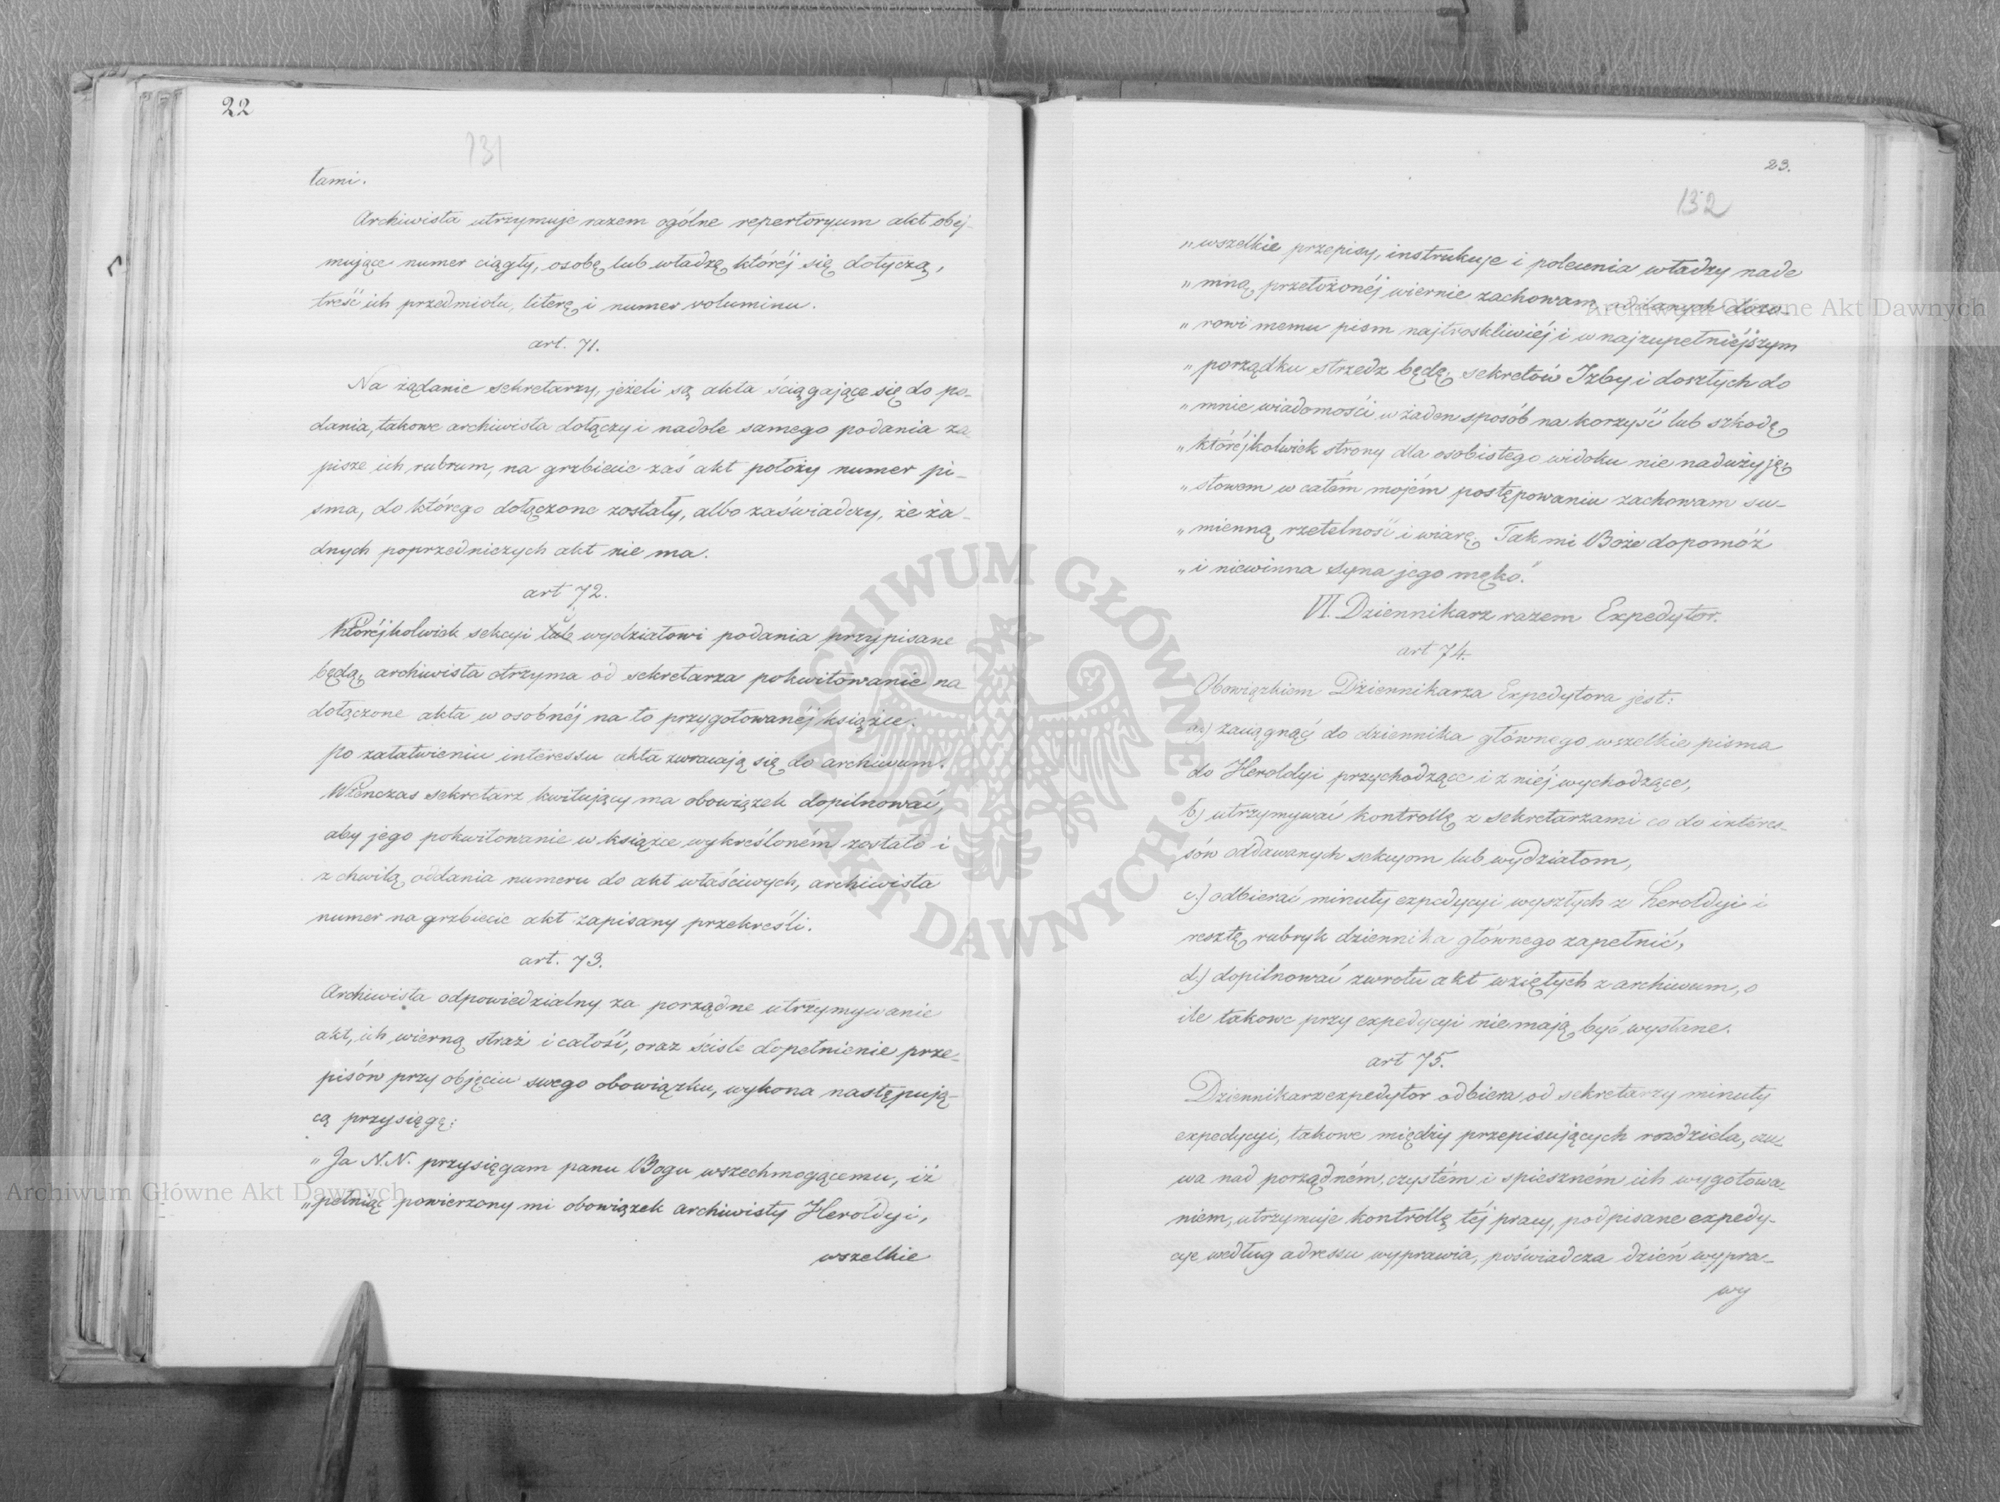 22
131
łami.
Archiwista utrzymuje razem ogólne repertoryum akt obej-
mujące numer ciągły, osobę lub władzę któréj się dotyczą,
treść ich przedmiotu, literę i numer woluminu.
art. 71.
Na żądanie sekretarzy, jeżeli są akta ściągające się do po-
dania, takowe archiwista dołączy i nadole samego podania za-
pisze ich rubrum, na grzbiecie zaś akt położy numer pi-
sma, do którego dołączone zostały, albo zaświadczy, że ża-
dnych poprzedniczych akt nie ma.
art 72.
Któréjkolwiek sekcyi lub wydziałowi podania przypisane
będą, archiwista otrzyma od sekretarza pokwitowanie na
dołączone akta w osobnéj na to przygotowanéj książce.
Po załatwieniu interessu akta zwracają się do archiwum.
Wtenczas sekretarz kwitujący ma obowiązek dopilnować,
aby jego pokwitowanie w książce wykreśloném zostało i
z chwilą oddania numeru do akt właściwych, archiwista
numer na grzbiecie akt zapisany przekreśli.
art. 73.
Archiwista odpowiedzialny za porządne utrzymywanie
akt, ich wierną straż i całość, oraz ścisłe dopełnienie prze-
pisów przy objęciu swego obowiązku, wykona następują-
cą przysięgę:
„Ja N.N. przysięgam panu Bogu wszechmogącemu, iż
„pełniąc powierzony mi obowiązek archiwisty Heroldyi,
wszelkie
23.
132
„wszelkie przepisy, instrukcye i polecenia władzy nade
„mną przełożonéj wiernie zachowam, oddanych dozo-
„rowi memu pism najtroskliwiéj i w najzupełniejszym
„porządku strzedz będę, sekretów Izby i doszłych do
„mnie wiadomości w żaden sposób na korzyść lub szkodę
„któréjkolwiek strony dla osobistego widoku nie nadużyję,
„słowem w całém mojém postępowaniu zachowam su-
„mienną rzetelność i wiarę. Tak mi Boże dopomóż
„i niewinna syna jego męko."
VI. Dziennikarz razem Expedytor.
art 74.
Obowiązkiem Dziennikarza Expedytora jest:
a.) zaciągnąć do dziennika głównego wszelkie pisma
do Heroldyi przychodzące i z niéj wychodzące,
b.) utrzymywać kontrollę z sekretarzami co do interes-
sów oddawanych sekcyom lub wydziałom,
c.) odbierać minuty expedycyi wyszłych z Heroldyi i
resztę rubryk dziennika głównego zapełnić,
d.) dopilnować zwrotu akt wziętych z archiwum, o
ile takowe przy expedycyi nie mają być wysłane.
art 75.
Dziennikarz expedytor odbiera od sekretarzy minuty
expedycyi, takowe między przepisujących rozdziela, czu-
wa nad porządném, czystém i spieszném ich wygotowa-
niem, utrzymuje kontrollę téj pracy, podpisane expedy-
cye według adressu wyprawia, poświadcza dzień wypra-
wy
Archiwum Główne Akt Dawnych
Archiwum Główne Akt Dawnych
ARCHIWUM GŁÓWNE AKT DAWNYCH